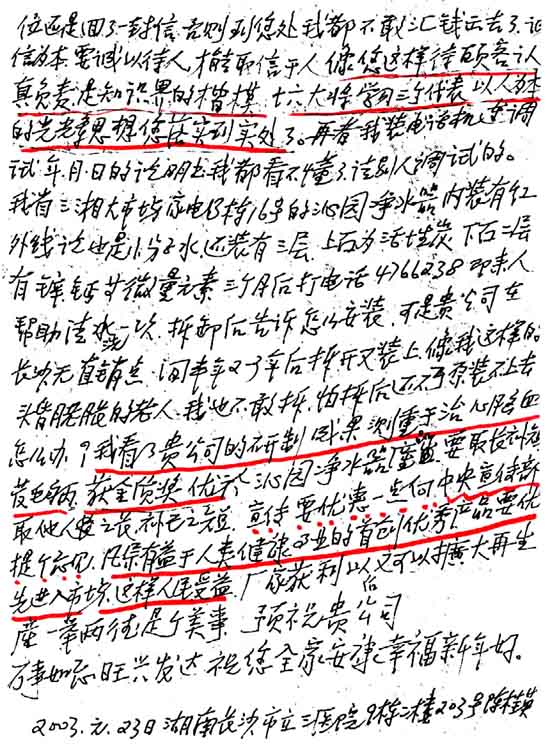 位还是回了一封信 否则到您处我都不敢汇钱去了
信为本 要诚以待人 才能取信于人 像您这样待顾客认
真负责是知识界的楷模 十六大将学习三个代表 以人为本
的光辉思想 您落实到实处了。再者我装电话机 调
试年、月、日的说明书我都看不懂了 请别人调试的。
我省三湘大市场家电城 栋16号的沁园净水器 内装有红
外线 说也是小分子水 还装有三层 上面为活性炭 下面二层
有锌 钙 等微量元素 三个月后打电话 4766238 即来人
帮助清 一次 拆卸后告诉怎么安装 可是贵公司在
长沙无直销点 间半年 年后拆开又装上 像我这样的
头昏脑胀的老人 我也不敢拆 怕拆后还不了原 装不上去
怎么办？ 我看了贵公司的研制 成果 侧重于治心脑血
管毛病 获金质奖 优于 沁园净水器 要取长补短
取他人之长 补己之短 宣传要优惠一些 向中央宣传部
提个意见 凡是有益于人类健康事业的首创优秀产品要优
先进入市场 这样人民受益 厂家获利 以后又可以扩大再生
产 一举两得是个美事 预祝贵公司
万事如意 旺兴发达 祝您全家安康 幸福 新年好。
2003. 元. 23日 湖南长沙市立三医院 9栋二楼203号 陈